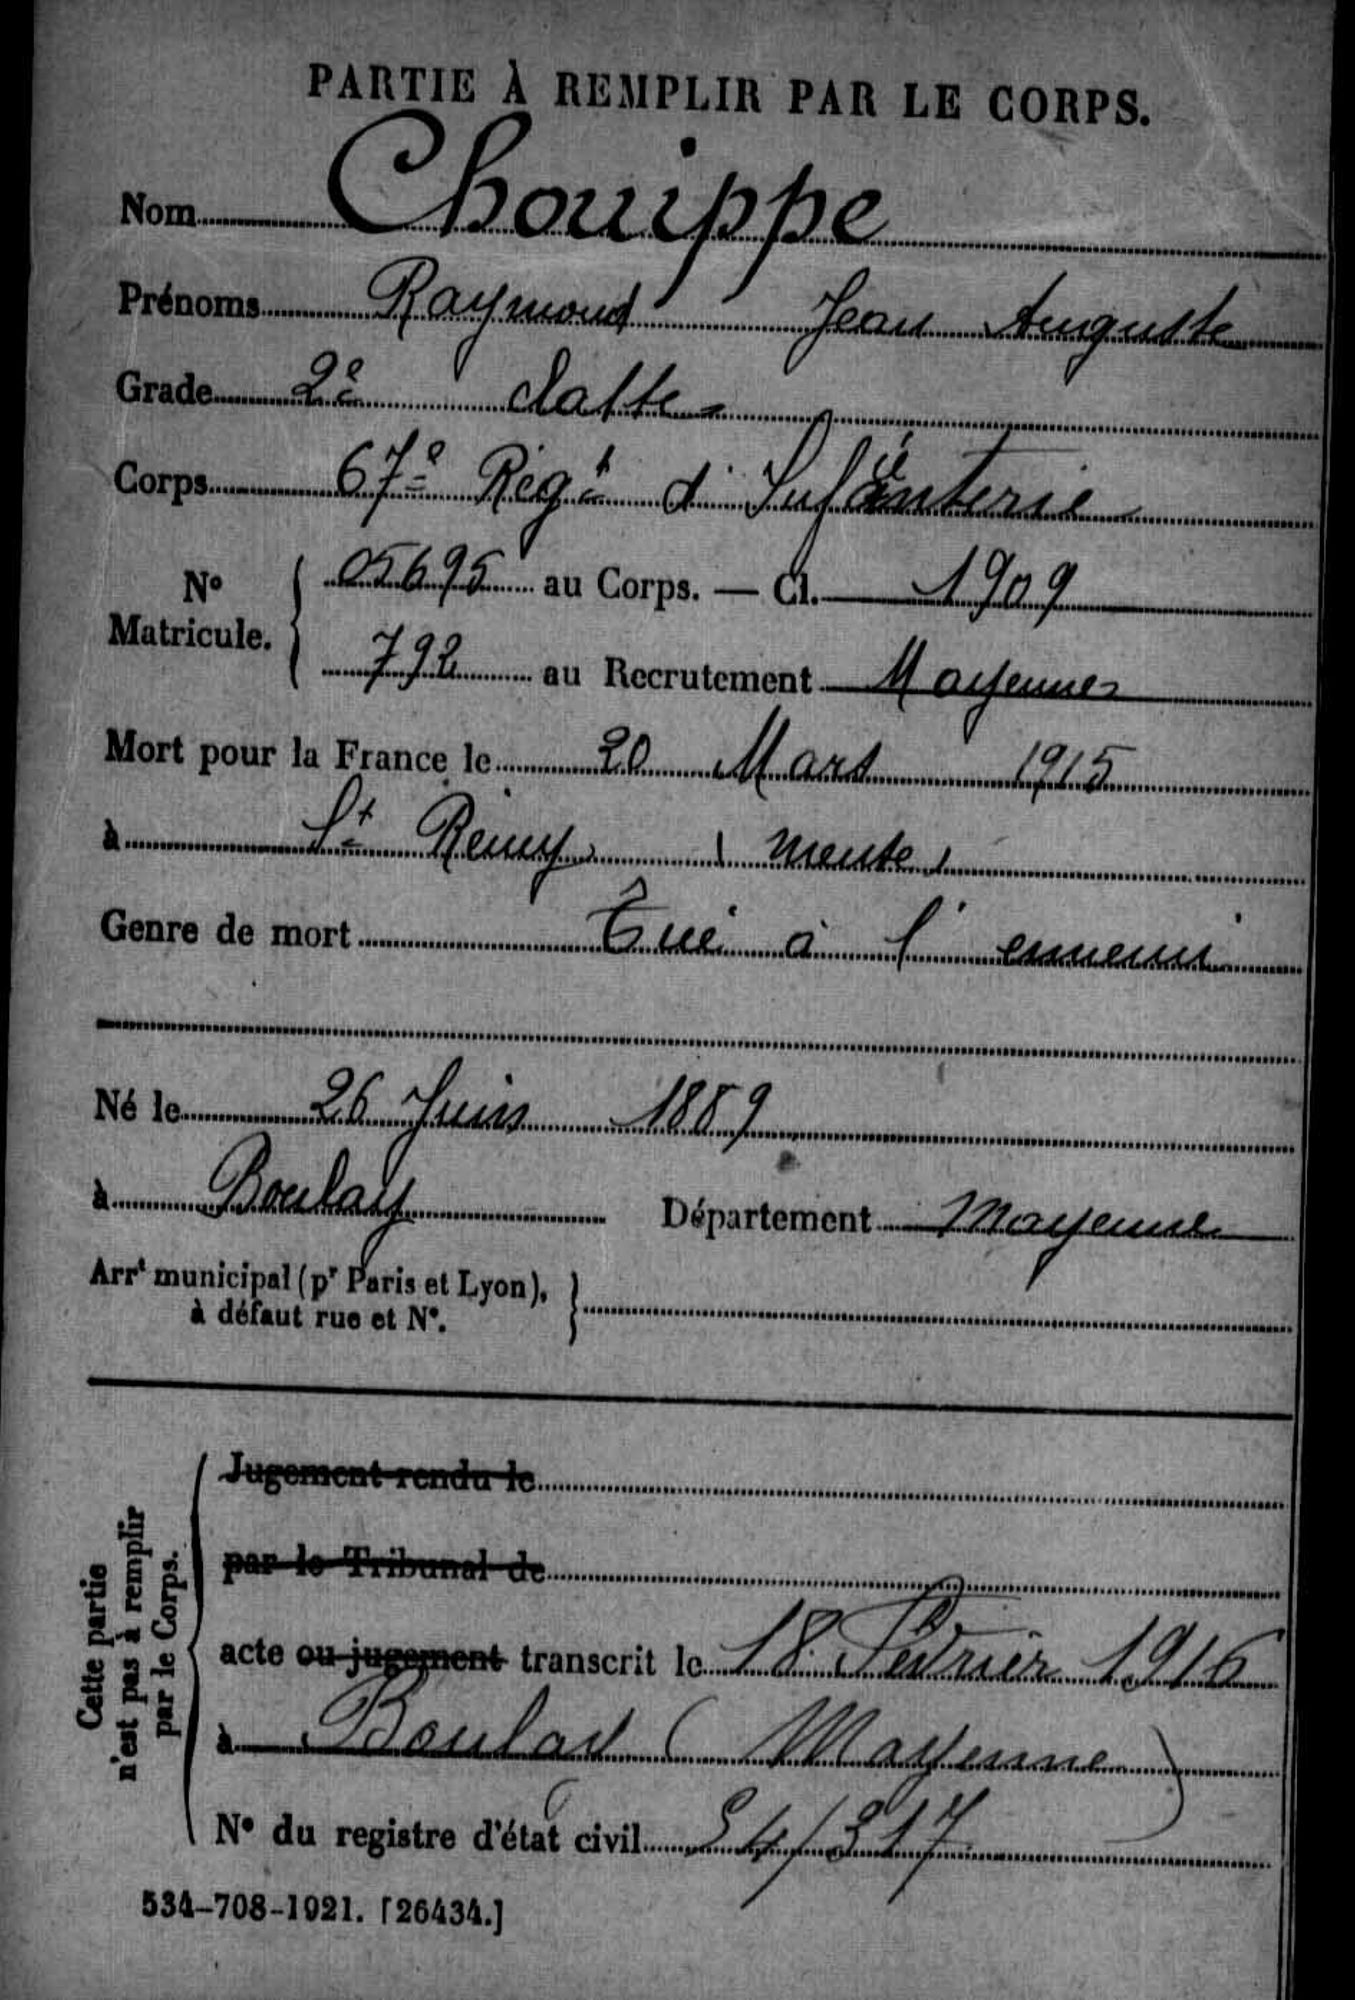 PARTIE À REMPLIR PAR LE CORPS.
Nom Chouippe
Prénoms Raymond Jean Auguste
Grade 2e classe
Corps 67e Régt d'Infanterie
No Matricule. 05695 au Corps. — Cl. 1909
792 au Recrutement Mayenne
Mort pour la France le 20 Mars 1915
à St Remy (meuse)
Genre de mort Tué à l'ennemi
Né le 26 Juin 1889
à Boulay Département Mayenne
Arrt municipal (pr Paris et Lyon),
à défaut rue et No.
Cette partie
n'est pas à remplir
par le Corps.
Jugement rendu le
par le Tribunal de
acte ou jugement transcrit le 18 Février 1916
à Boulay (Mayenne)
No du registre d'état civil
534-708-1921. [26434.]